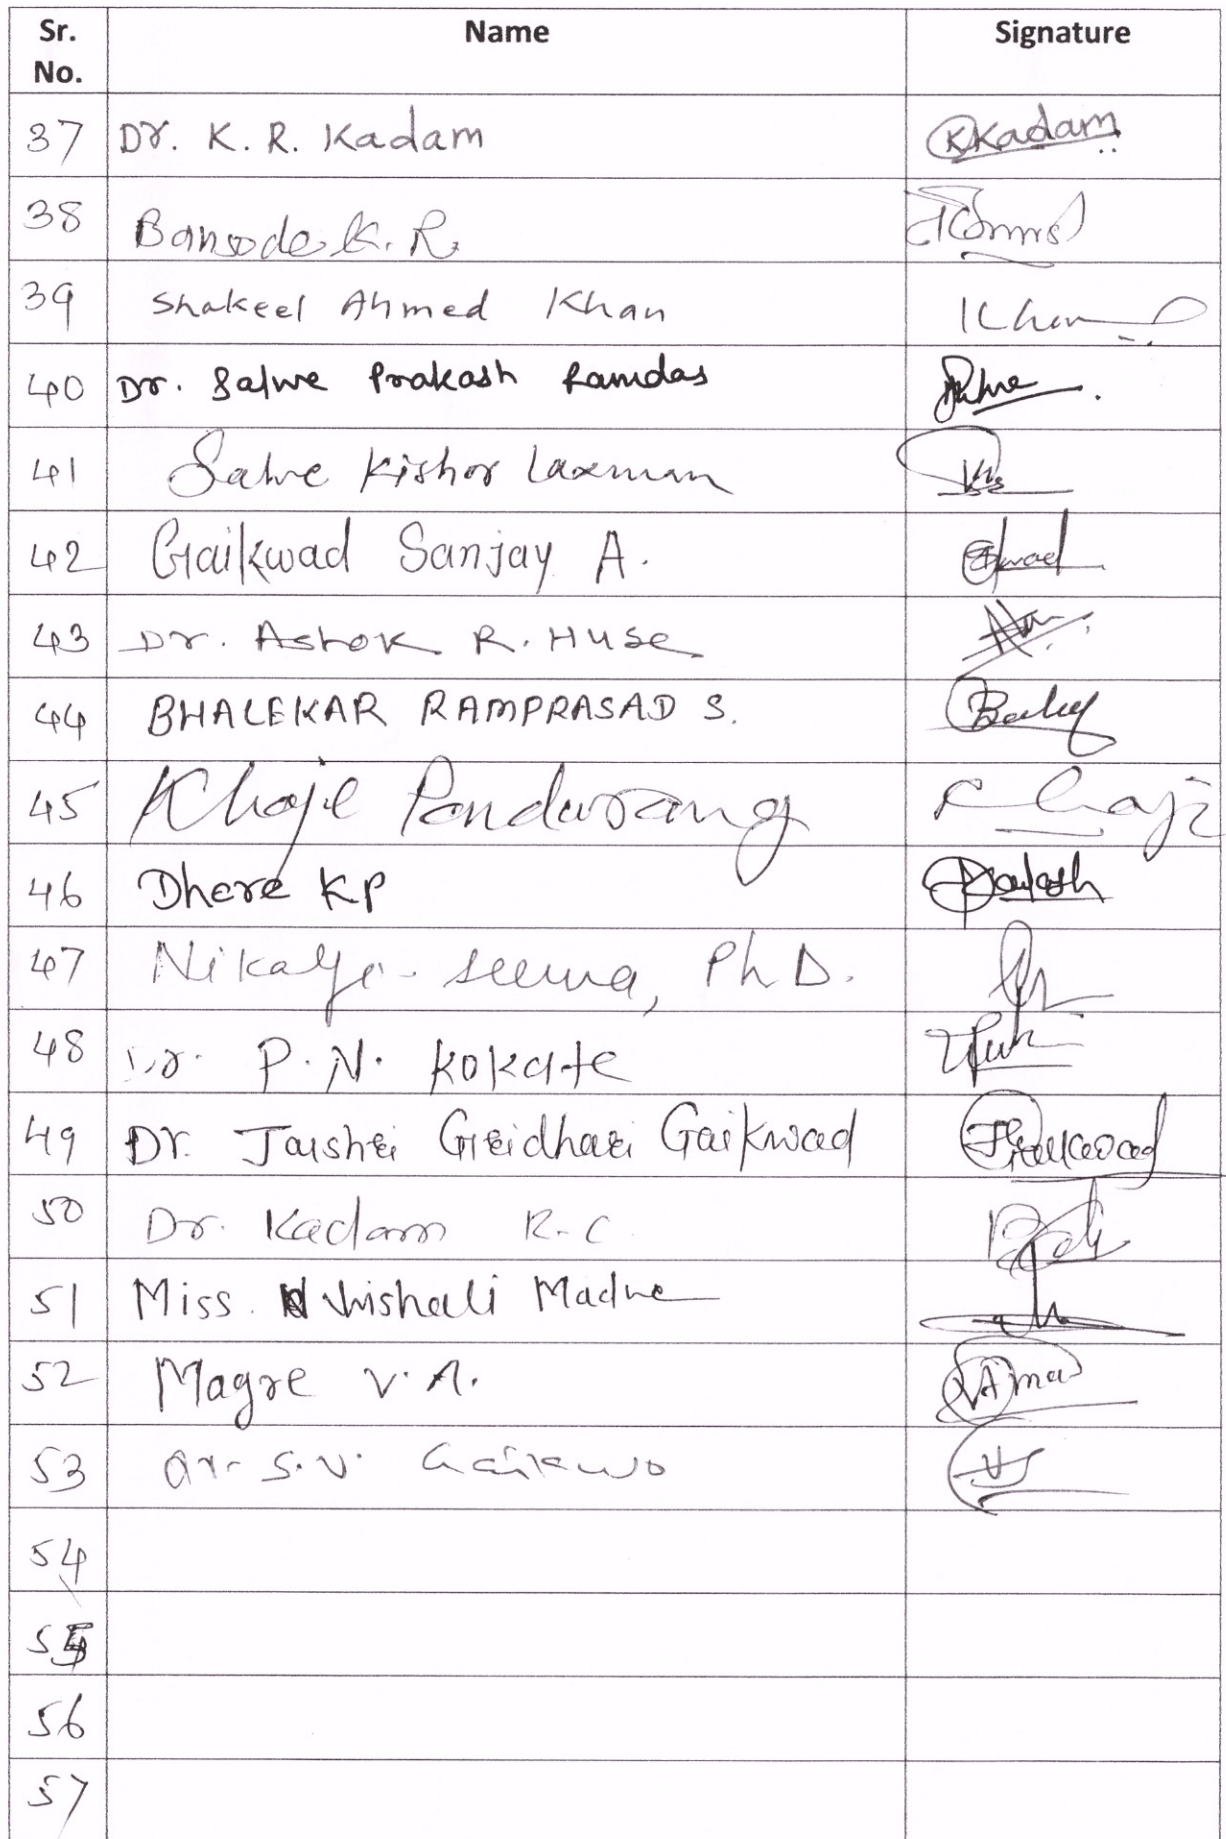 Sr. No. Name Signature
37 Dr. K. R. Kadam KKadam
38 Bansode K. R.
39 Shakeel Ahmed Khan Khan
40 Dr. Salve Prakash Ramdas
41 Salve Kishor Laxman
42 Gaikwad Sanjay A.
43 Dr. Ashok R. Huse
44 BHALEKAR RAMPRASAD S.
45 Khaje Pandurang
46 Dhere KP
47 Nikalje Seema, Ph D.
48 Dr. P. N. Kokate
49 Dr. Jaishri Giridhari Gaikwad
50 Dr. Kadam R. C
51 Miss. Madne
52 Magre V. A.
53 Dr. S. V. Gaikwad
54
55
56
57